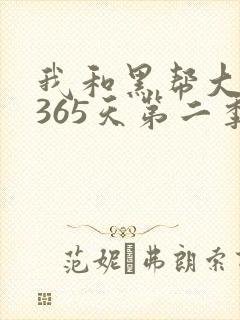 我和黑帮大
365天第二季
范妮·弗朗索